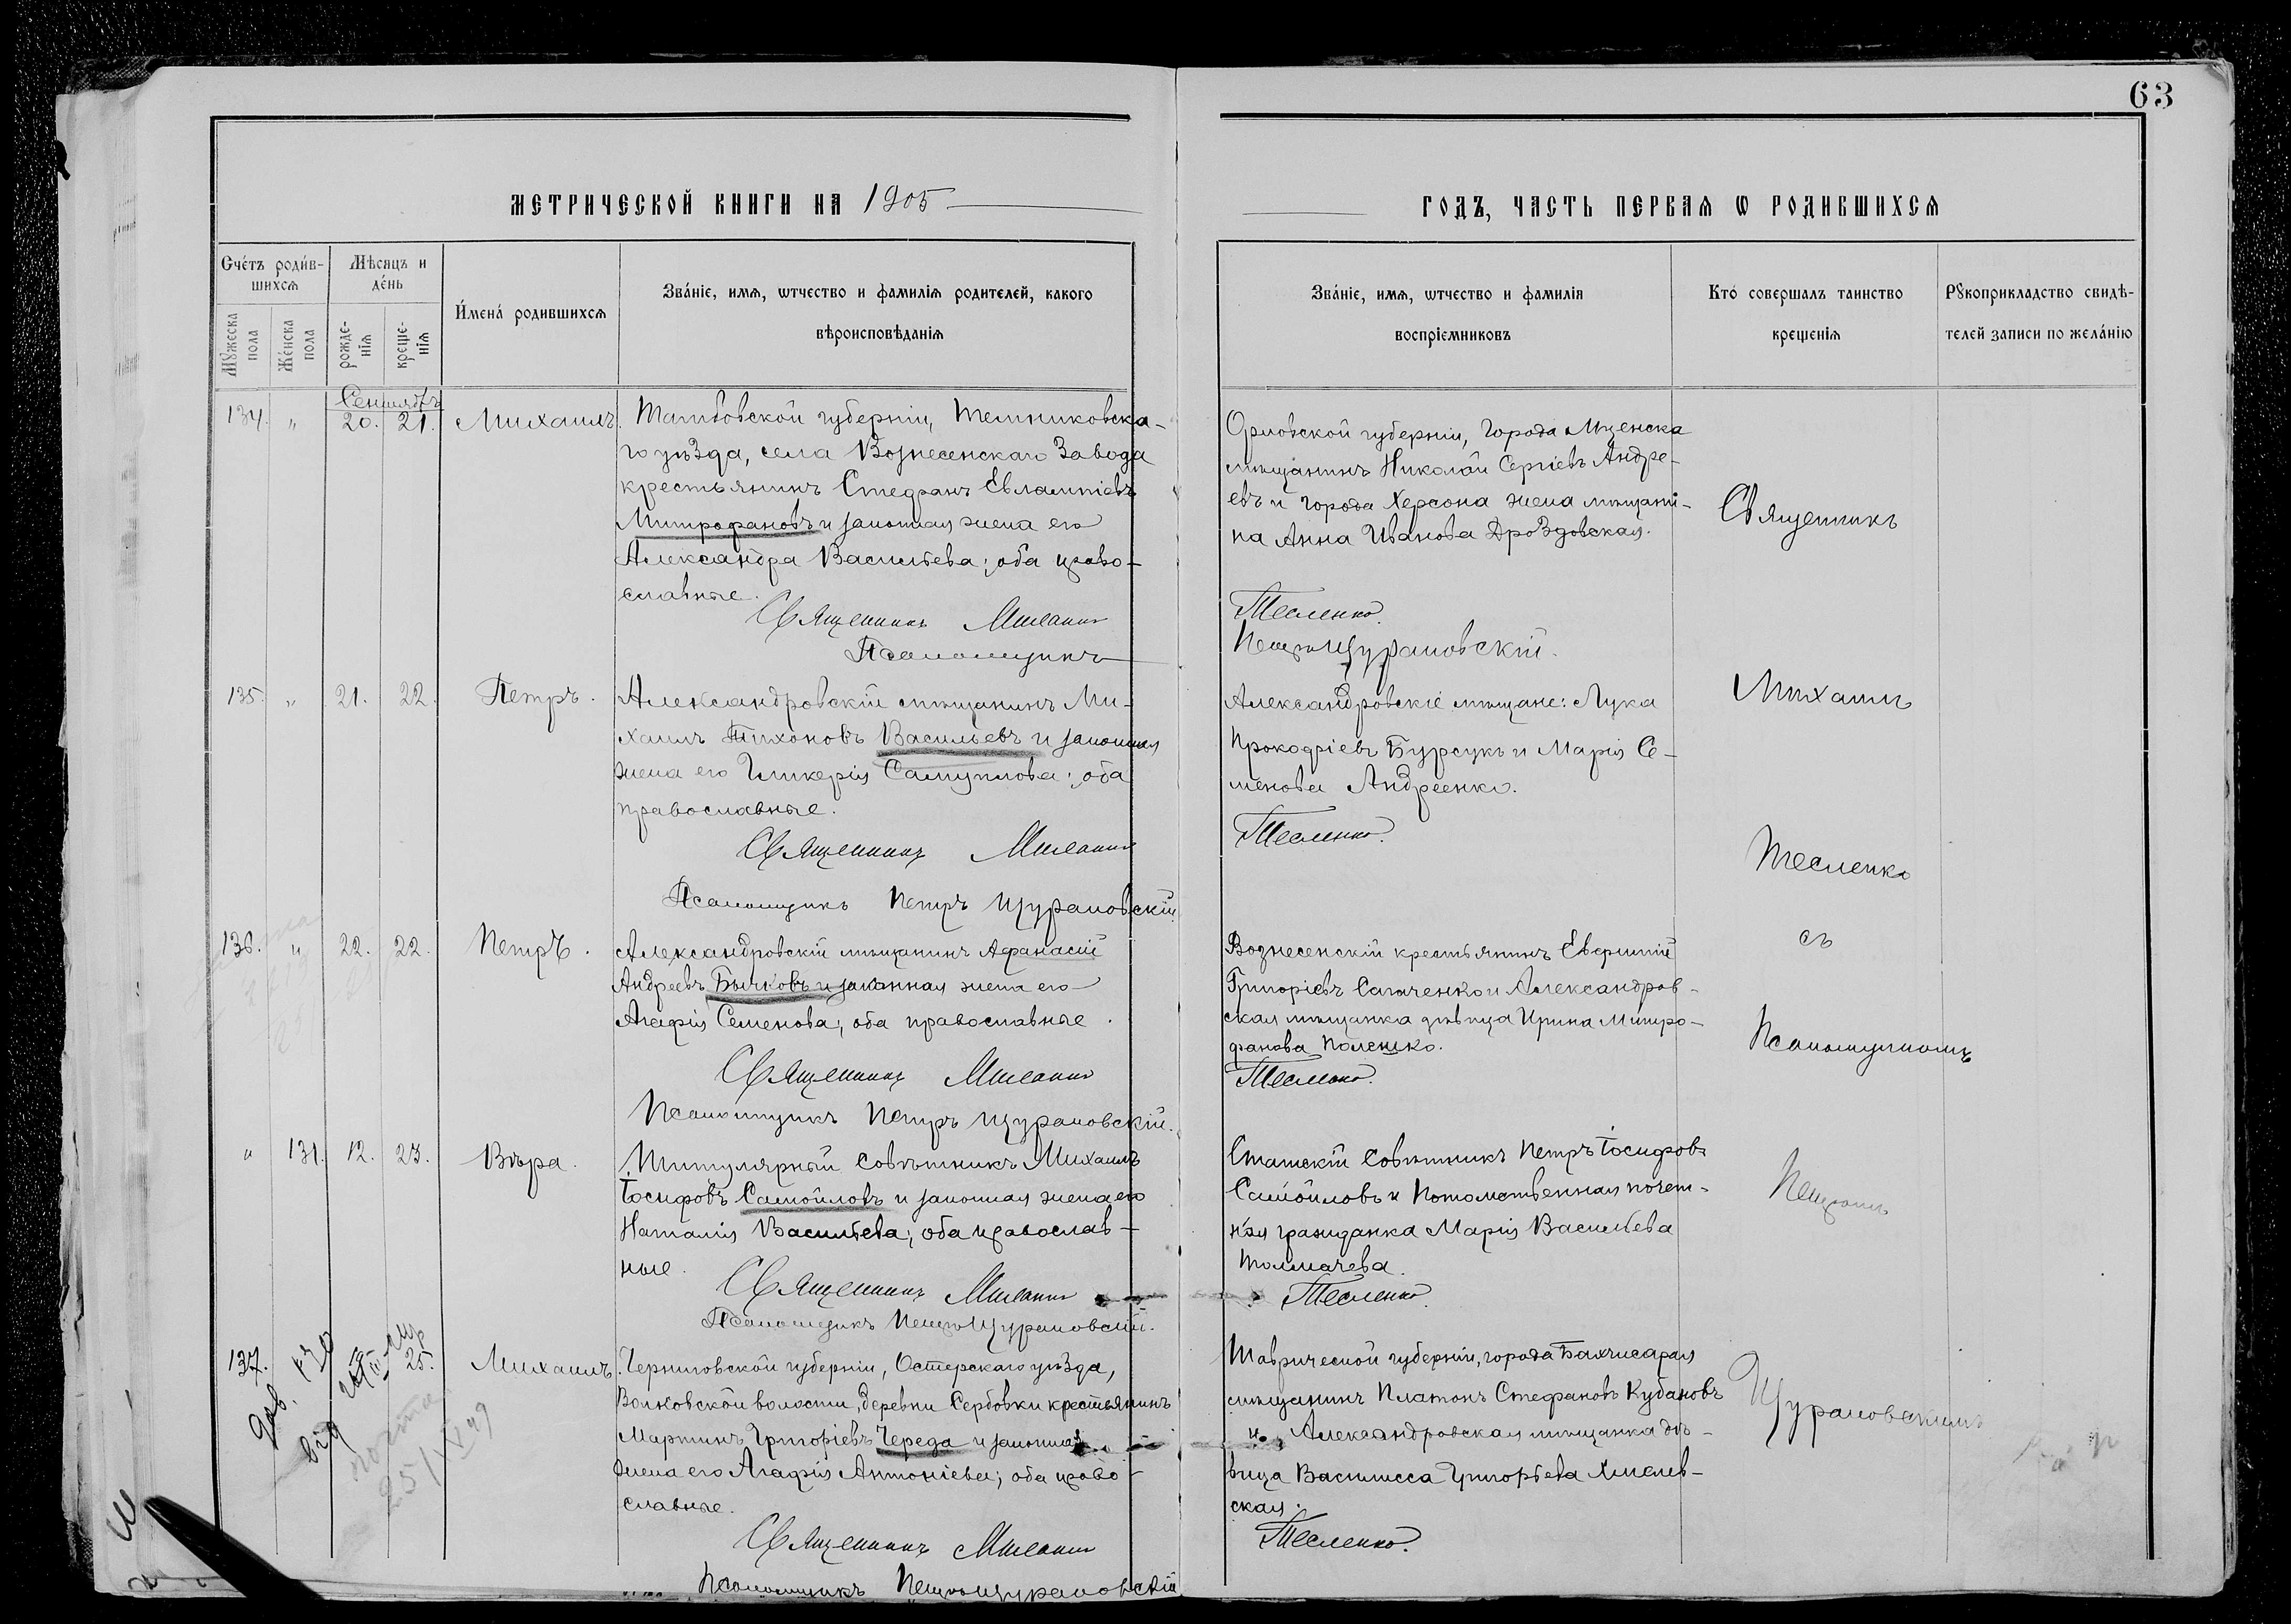 63
МЕТРИЧЕСКОЙ КНИГИ НА 1905
ГОДЪ, ЧАСТЬ ПЕРВАЯ Ѡ РОДИВШИХСЯ
Счетъ родив-
шихся
Мѣсяцъ и
день
Имена родившихся
Званіе, имя, ѡтчество и фамилія родителей, какого
вѣроисповѣданія
Мужеска
пола
Женска
пола
рожде-
нія
креще-
нія
Званіе, имя, ѡтчество и фамилія
воспріемниковъ
Кто совершалъ таинство
крещенія
Рукоприкладство свидѣ-
телей записи по желанію
Сентябрь
134. " 20. 21. Михаилъ. Тамбовской губерніи, Темниковска-
го уѣзда, села Вознесенскаго Завода
крестьянинъ Стефанъ Евлампіевъ
Митрофановъ и законная жена его
Александра Васильева; оба право-
славные.
Священникъ Михаилъ
Псаломщикъ
Орловской губерніи, города Мценска
мѣщанинъ Николай Сергіевъ Андре-
евъ и города Херсона жена мѣщани-
на Анна Иванова Дроздовская.
Тесленко.
Петръ Щурановскій.
Священникъ
135. " 21. 22. Петръ. Александровскій мѣщанинъ Ми-
хаилъ Тихоновъ Васильевъ и законная
жена его Гликерія Самуилова; оба
православные.
Священникъ Михаилъ
Псаломщикъ Петръ Щурановскій
Александровскіе мѣщане: Лука
Прокофіевъ Бурсукъ и Марія Се-
менова Андреенко.
Тесленко.
Михаилъ
Тесленко
136. " 22. 22. Петръ. Александровскій мѣщанинъ Афанасій
Андреевъ Бычковъ и законная жена его
Агафія Семенова; оба православные.
Священникъ Михаилъ
Псаломщикъ Петръ Щурановскій.
Вознесенскій крестьянинъ Евфимій
Григоріевъ Сагаченко и Александров-
ская мѣщанка дѣвица Ирина Митро-
фанова Полешко.
Тесленко.
съ
Псаломщикомъ
" 131. 12. 23. Вѣра. Титулярный Совѣтникъ Михаилъ
Іосифовъ Самойловъ и законная жена его
Наталія Васильева; оба православ-
ные.
Священникъ Михаилъ
Псаломщикъ Петръ Щурановскій.
Статскій Совѣтникъ Петръ Іосифовъ
Самойловъ и Потомственная почет-
ная гражданка Марія Васильева
Толмачева.
Тесленко.
Петромъ
137. 25. Михаилъ. Черниговской губерніи, Остерскаго уѣзда,
Волковской волости, деревни Сербовки крестьянинъ
Мартинъ Григоріевъ Череда и законная
жена его Агафія Антоніева; оба право-
славные.
Священникъ Михаилъ
Псаломщикъ Петръ Щурановскій
Таврической губерніи, города Бахчисарая
мѣщанинъ Платонъ Стефановъ Кубановъ
и Александровская мѣщанка дѣ-
вица Василисса Григорьева Хмелев-
ская.
Тесленко.
Щурановскимъ